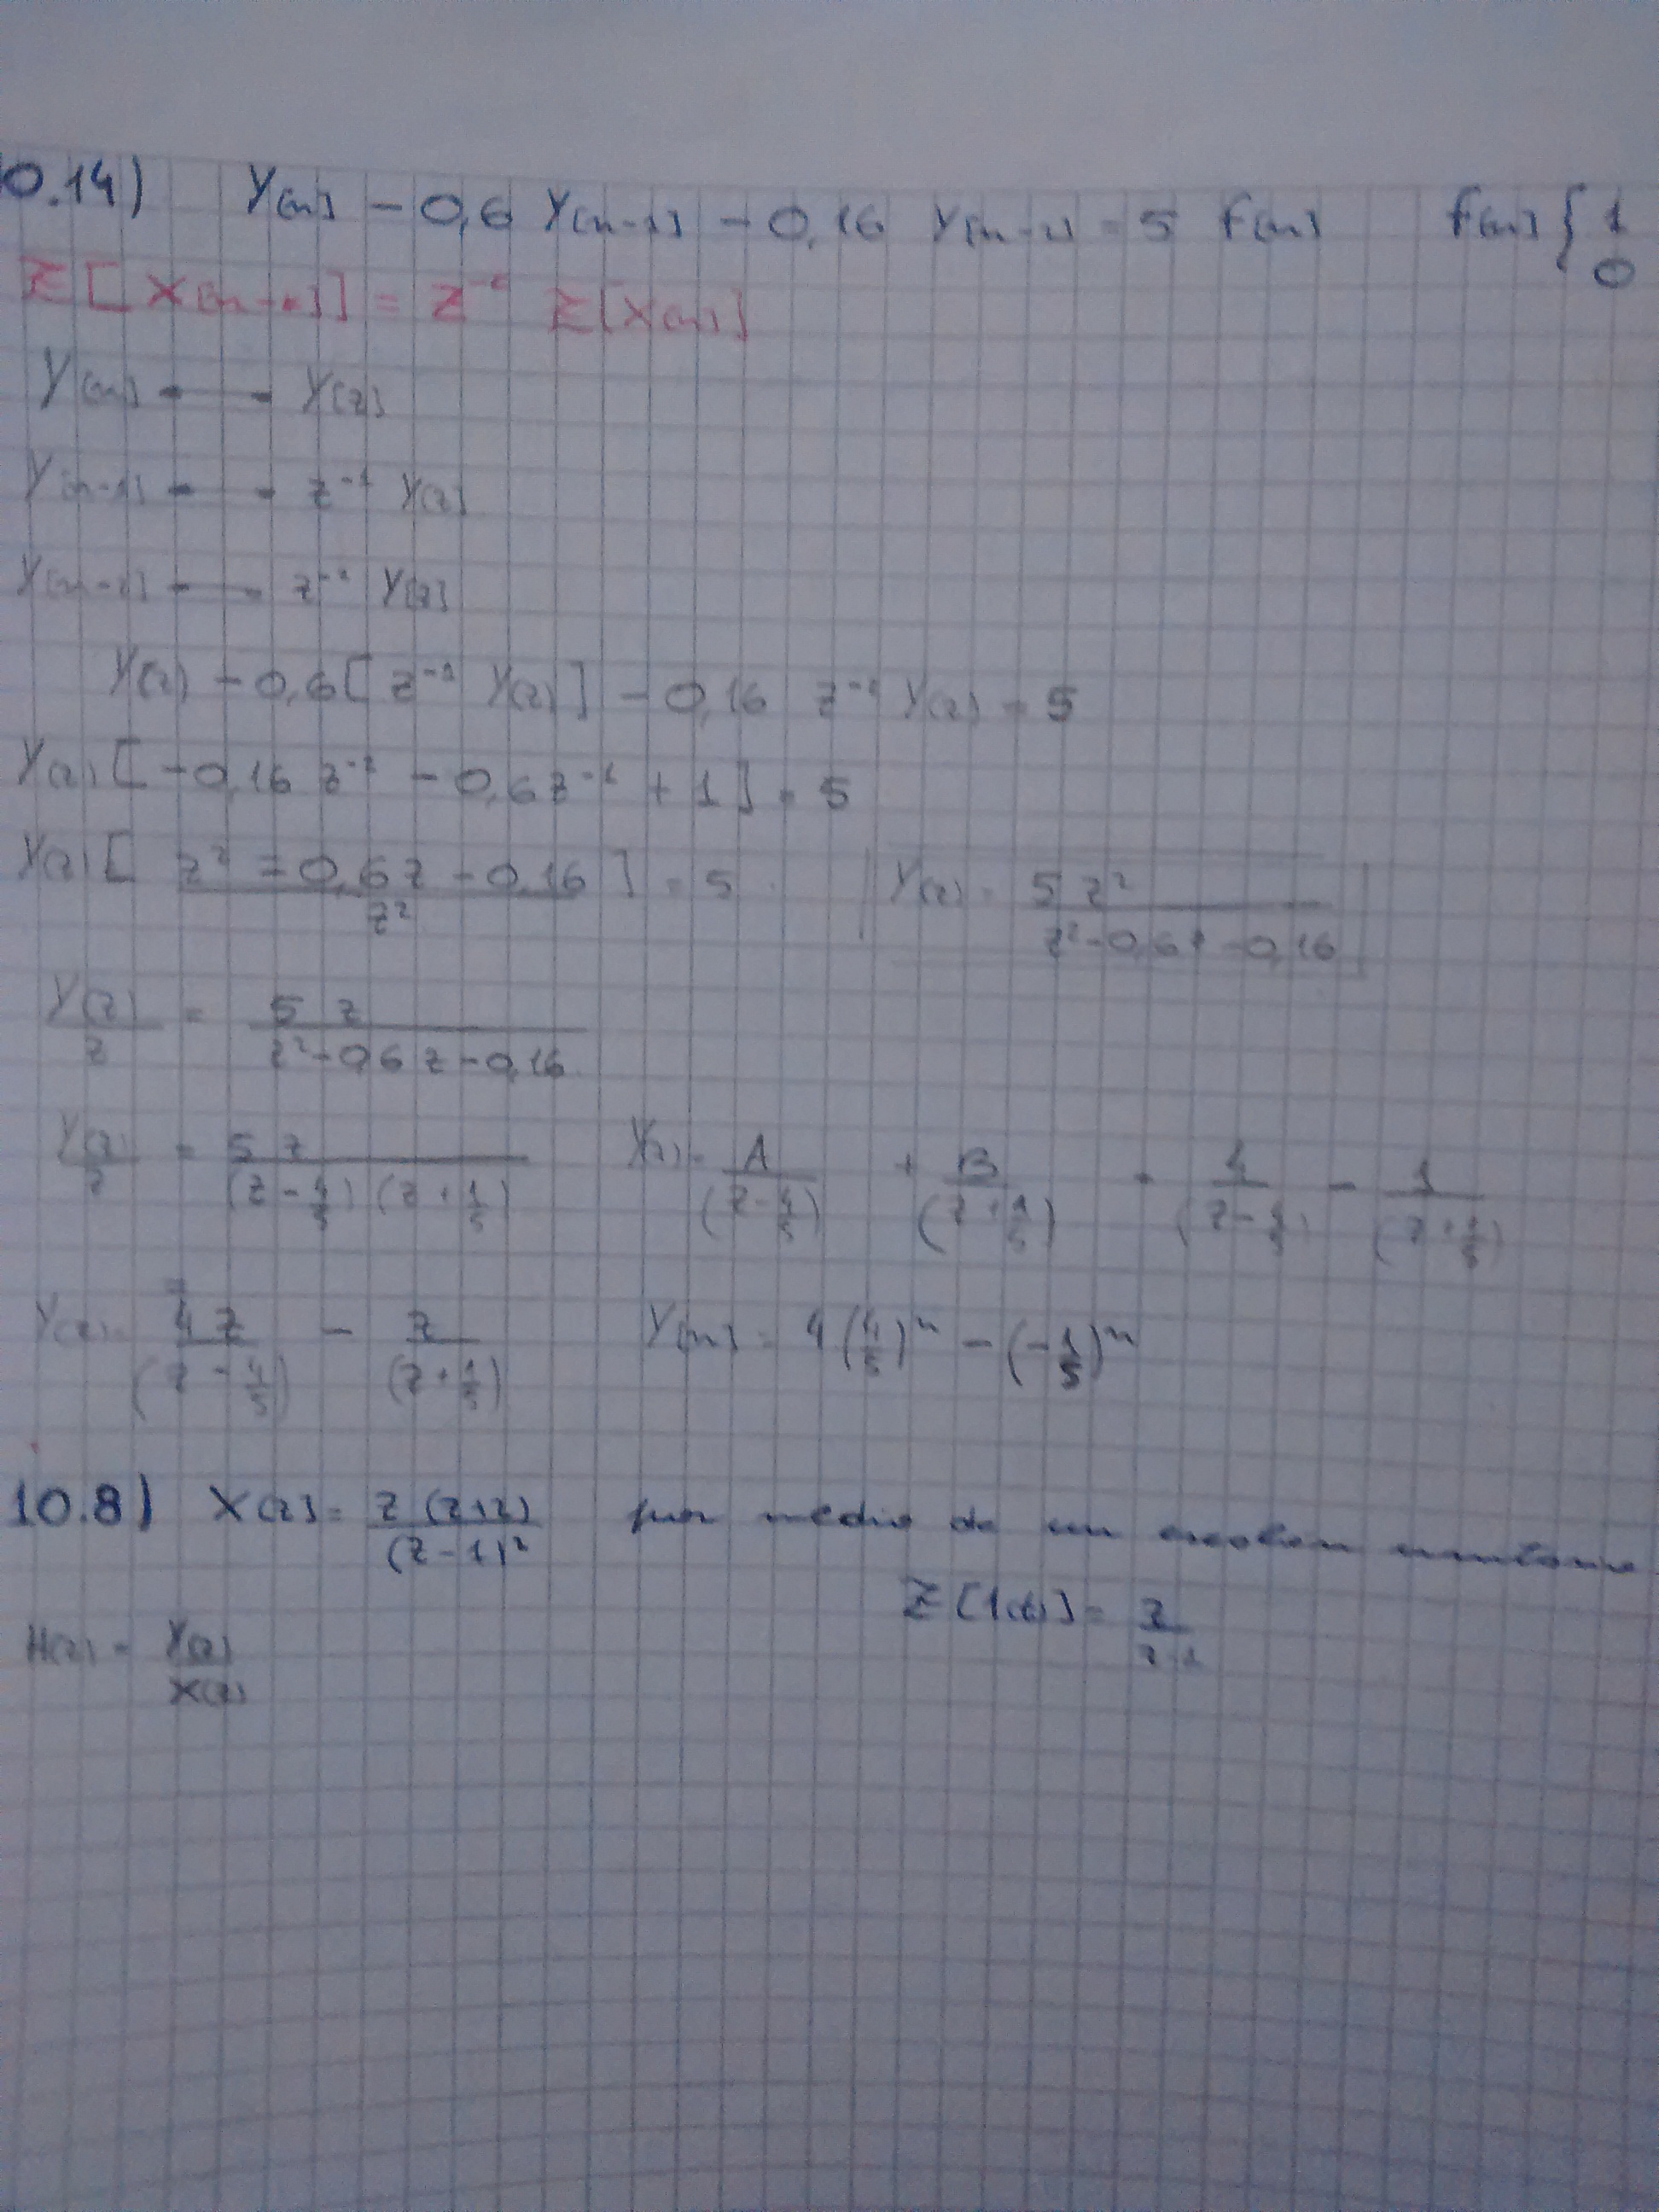 0.14) Y(n) - 0,6 Y(n-1) - 0,16 Y(n-2) = 5 f(n) f(n) { 1 0
Z[X(n-k)] = z⁻ᵏ Z[X(n)]
Y(n) •—• Y(z)
Y(n-1) •—• z⁻¹ Y(z)
Y(n-2) •—• z⁻² Y(z)
Y(z) - 0,6 [z⁻¹ Y(z)] - 0,16 z⁻² Y(z) = 5
Y(z) [-0,16 z⁻² - 0,6 z⁻¹ + 1] = 5
Y(z) [ (z² - 0,6z - 0,16) / z² ] = 5 Y(z) = 5 z² / (z² - 0,6z - 0,16)
Y(z)/z = 5 z / (z² - 0,6 z - 0,16)
Y(z)/z = 5 z / ((z - 4/5) (z + 1/5)) Y(z) = A / (z - 4/5) + B / (z + 1/5) = 4 / (z - 4/5) - 1 / (z + 1/5)
Y(z) = 4 z / (z - 4/5) - z / (z + 1/5) Y(n) = 4 (4/5)ⁿ - (-1/5)ⁿ
10.8) X(z) = z (z+2) / (z-1)² por medio de un
Z[1(t)] = z / (z-1)
H(z) = Y(z) / X(z)